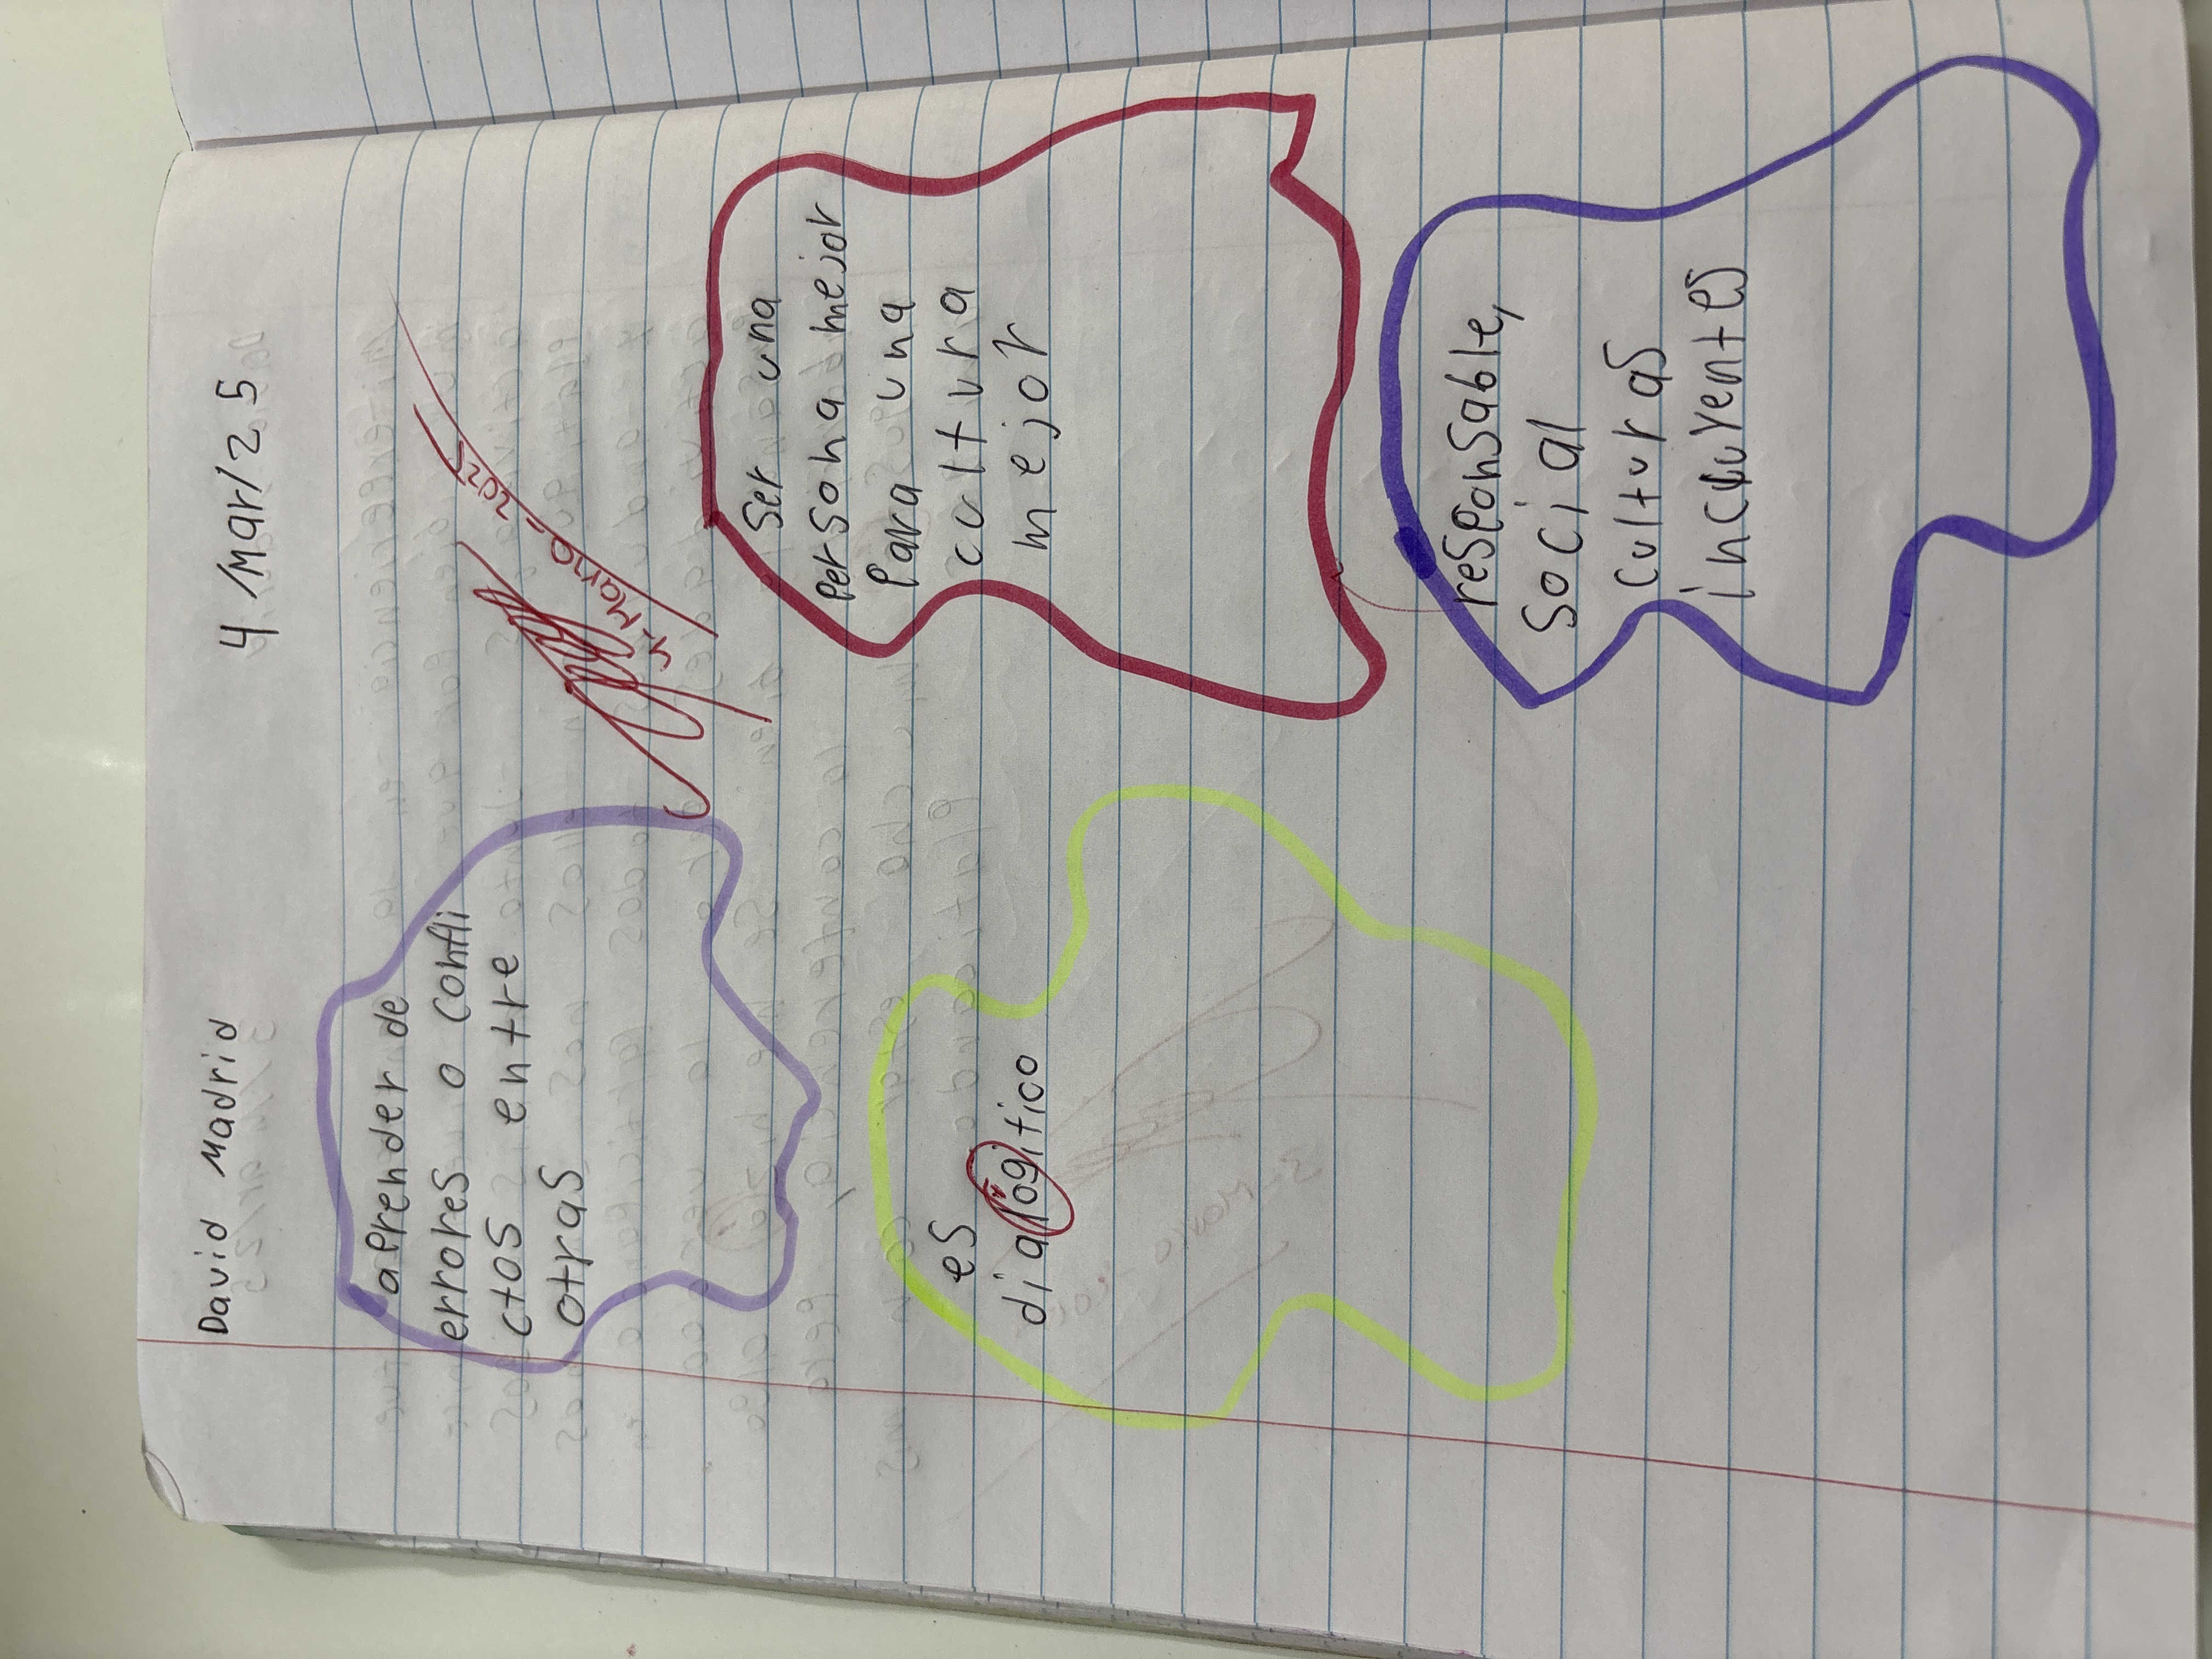 David Madrid
4 Mar/25
4-Marzo-2025
aprender de
errores o confli
ctos entre
otras
ser una
persona mejor
para una
cultura
mejor
es
dialogítico
responsable,
social
culturas